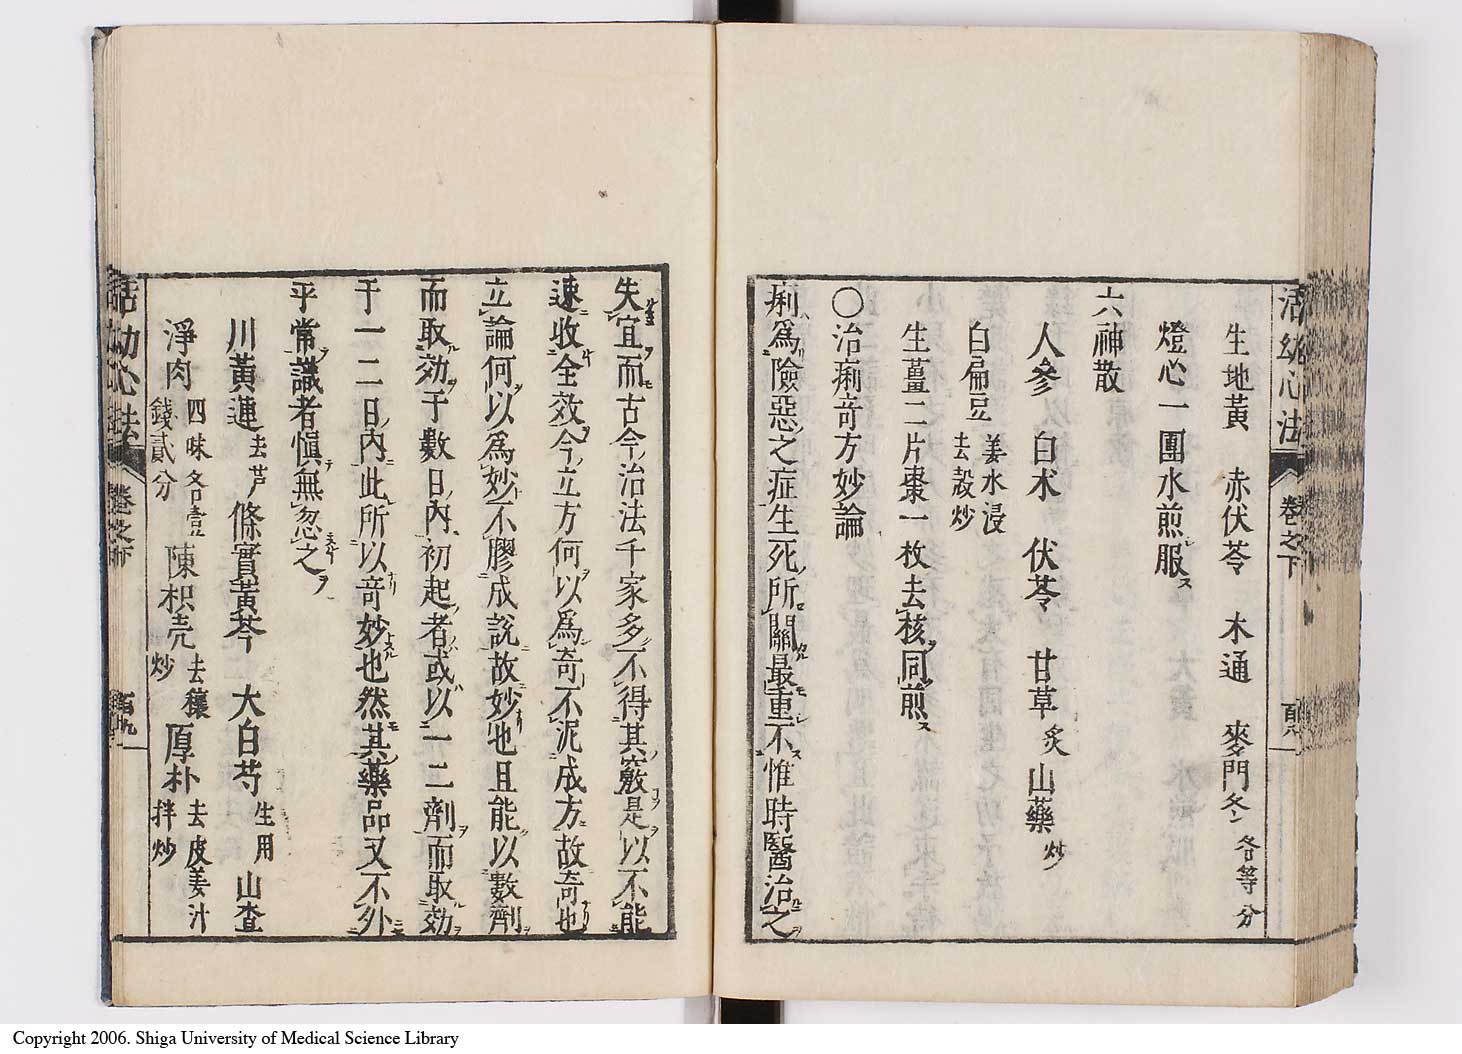 活幼心法 卷之下 百八
生地黃 赤伏苓 木通 麥門冬 各等分
燈心一團水煎服ス
六神散
人參 白术 伏苓 甘草 炙 山藥 炒
白扁豆 姜水浸去殼炒
生薑二片棗一枚去核同煎ス
〇治痢竒方妙論
痢爲險惡之症生死所關最重不惟時醫治之
失宜而古今治法千家多不得其竅是以不能
速收全效今立方何以爲奇不泥成方故奇也
立論何以爲妙不膠成説故妙也且能以數劑
而取効于數日内初起者或以一二劑而取効
于一二日内此所以竒妙也然其藥品又不外
乎常識者愼無忽之
川黃連 去芦 條實黃芩 大白芍 生用 山查
淨肉 四味各壹錢貳分 陳枳壳 去穰炒 厚朴 去皮姜汁拌炒
活幼心法 卷之下 百九
Copyright 2006. Shiga University of Medical Science Library